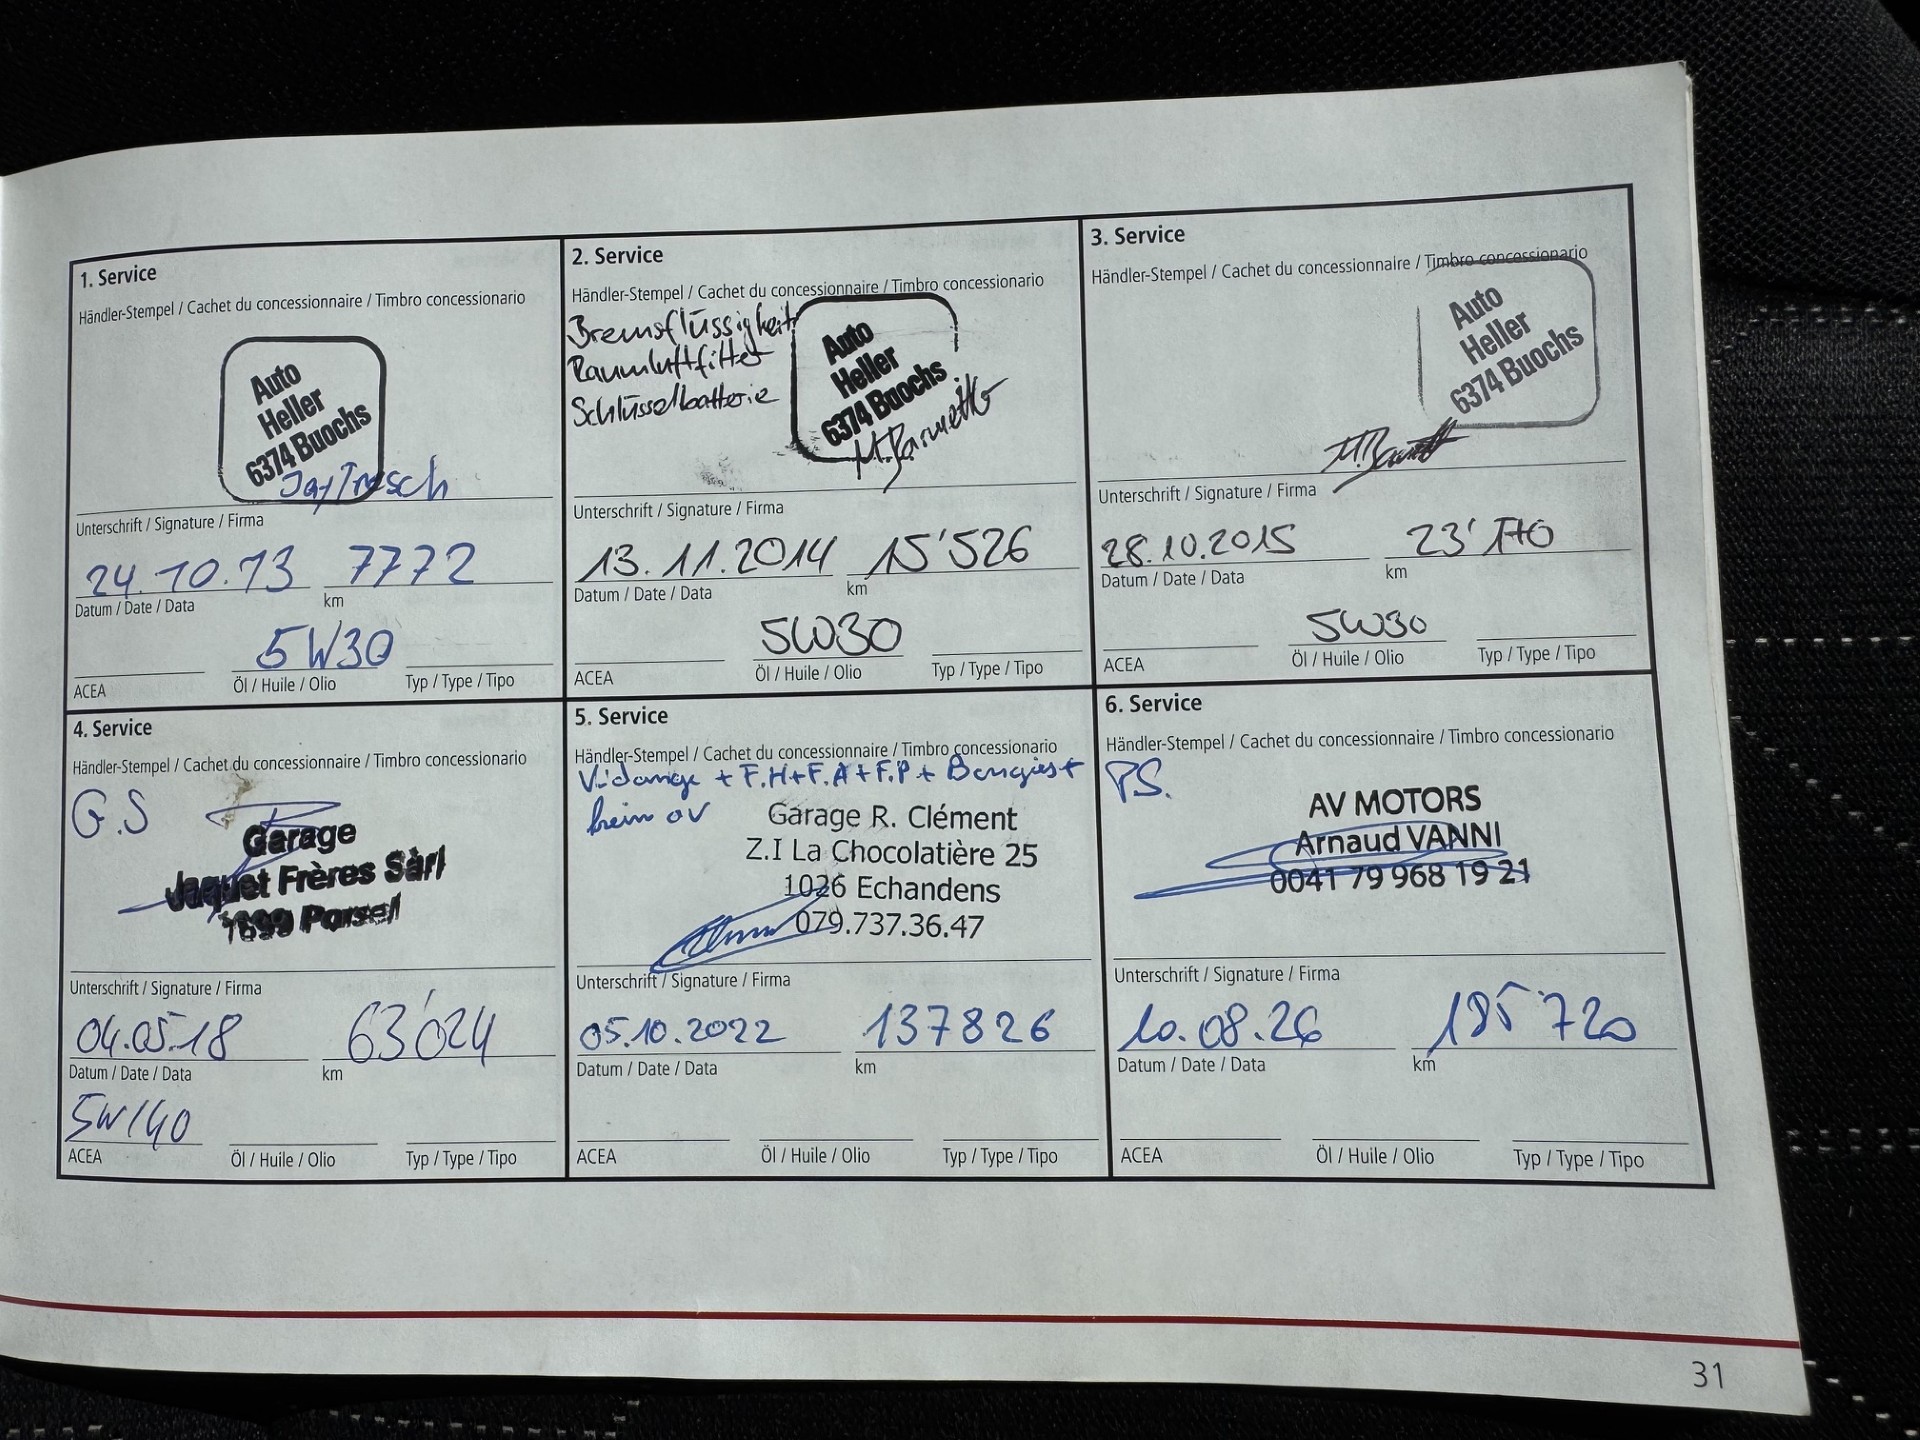 1. Service
Händler-Stempel / Cachet du concessionnaire / Timbro concessionario
Auto
Heller
6374 Buochs
Unterschrift / Signature / Firma
24.10.13 7772
Datum / Date / Data km
5W30
ACEA Öl / Huile / Olio Typ / Type / Tipo
2. Service
Händler-Stempel / Cachet du concessionnaire / Timbro concessionario
Bremsflüssigkeit
Raumluftfilter
Schlüsselbatterie
Auto
Heller
6374 Buochs
Unterschrift / Signature / Firma
13.11.2014 15'526
Datum / Date / Data km
5W30
ACEA Öl / Huile / Olio Typ / Type / Tipo
3. Service
Händler-Stempel / Cachet du concessionnaire / Timbro concessionario
Auto
Heller
6374 Buochs
Unterschrift / Signature / Firma
28.10.2015
Datum / Date / Data km
5W30
ACEA Öl / Huile / Olio Typ / Type / Tipo
4. Service
Händler-Stempel / Cachet du concessionnaire / Timbro concessionario
G.S
Garage
Jaquet Frères Sàrl
Unterschrift / Signature / Firma
04.05.18 63'024
Datum / Date / Data km
5W/40
ACEA Öl / Huile / Olio Typ / Type / Tipo
5. Service
Händler-Stempel / Cachet du concessionnaire / Timbro concessionario
Vidange + F.H + F.A + F.P + Bougies +
frein av
Garage R. Clément
Z.I La Chocolatière 25
1026 Echandens
079.737.36.47
Unterschrift / Signature / Firma
05.10.2022 137826
Datum / Date / Data km
ACEA Öl / Huile / Olio Typ / Type / Tipo
6. Service
Händler-Stempel / Cachet du concessionnaire / Timbro concessionario
P.S.
AV MOTORS
Arnaud VANNI
0041 79 968 19 21
Unterschrift / Signature / Firma
10.08.26 185'720
Datum / Date / Data km
ACEA Öl / Huile / Olio Typ / Type / Tipo
31